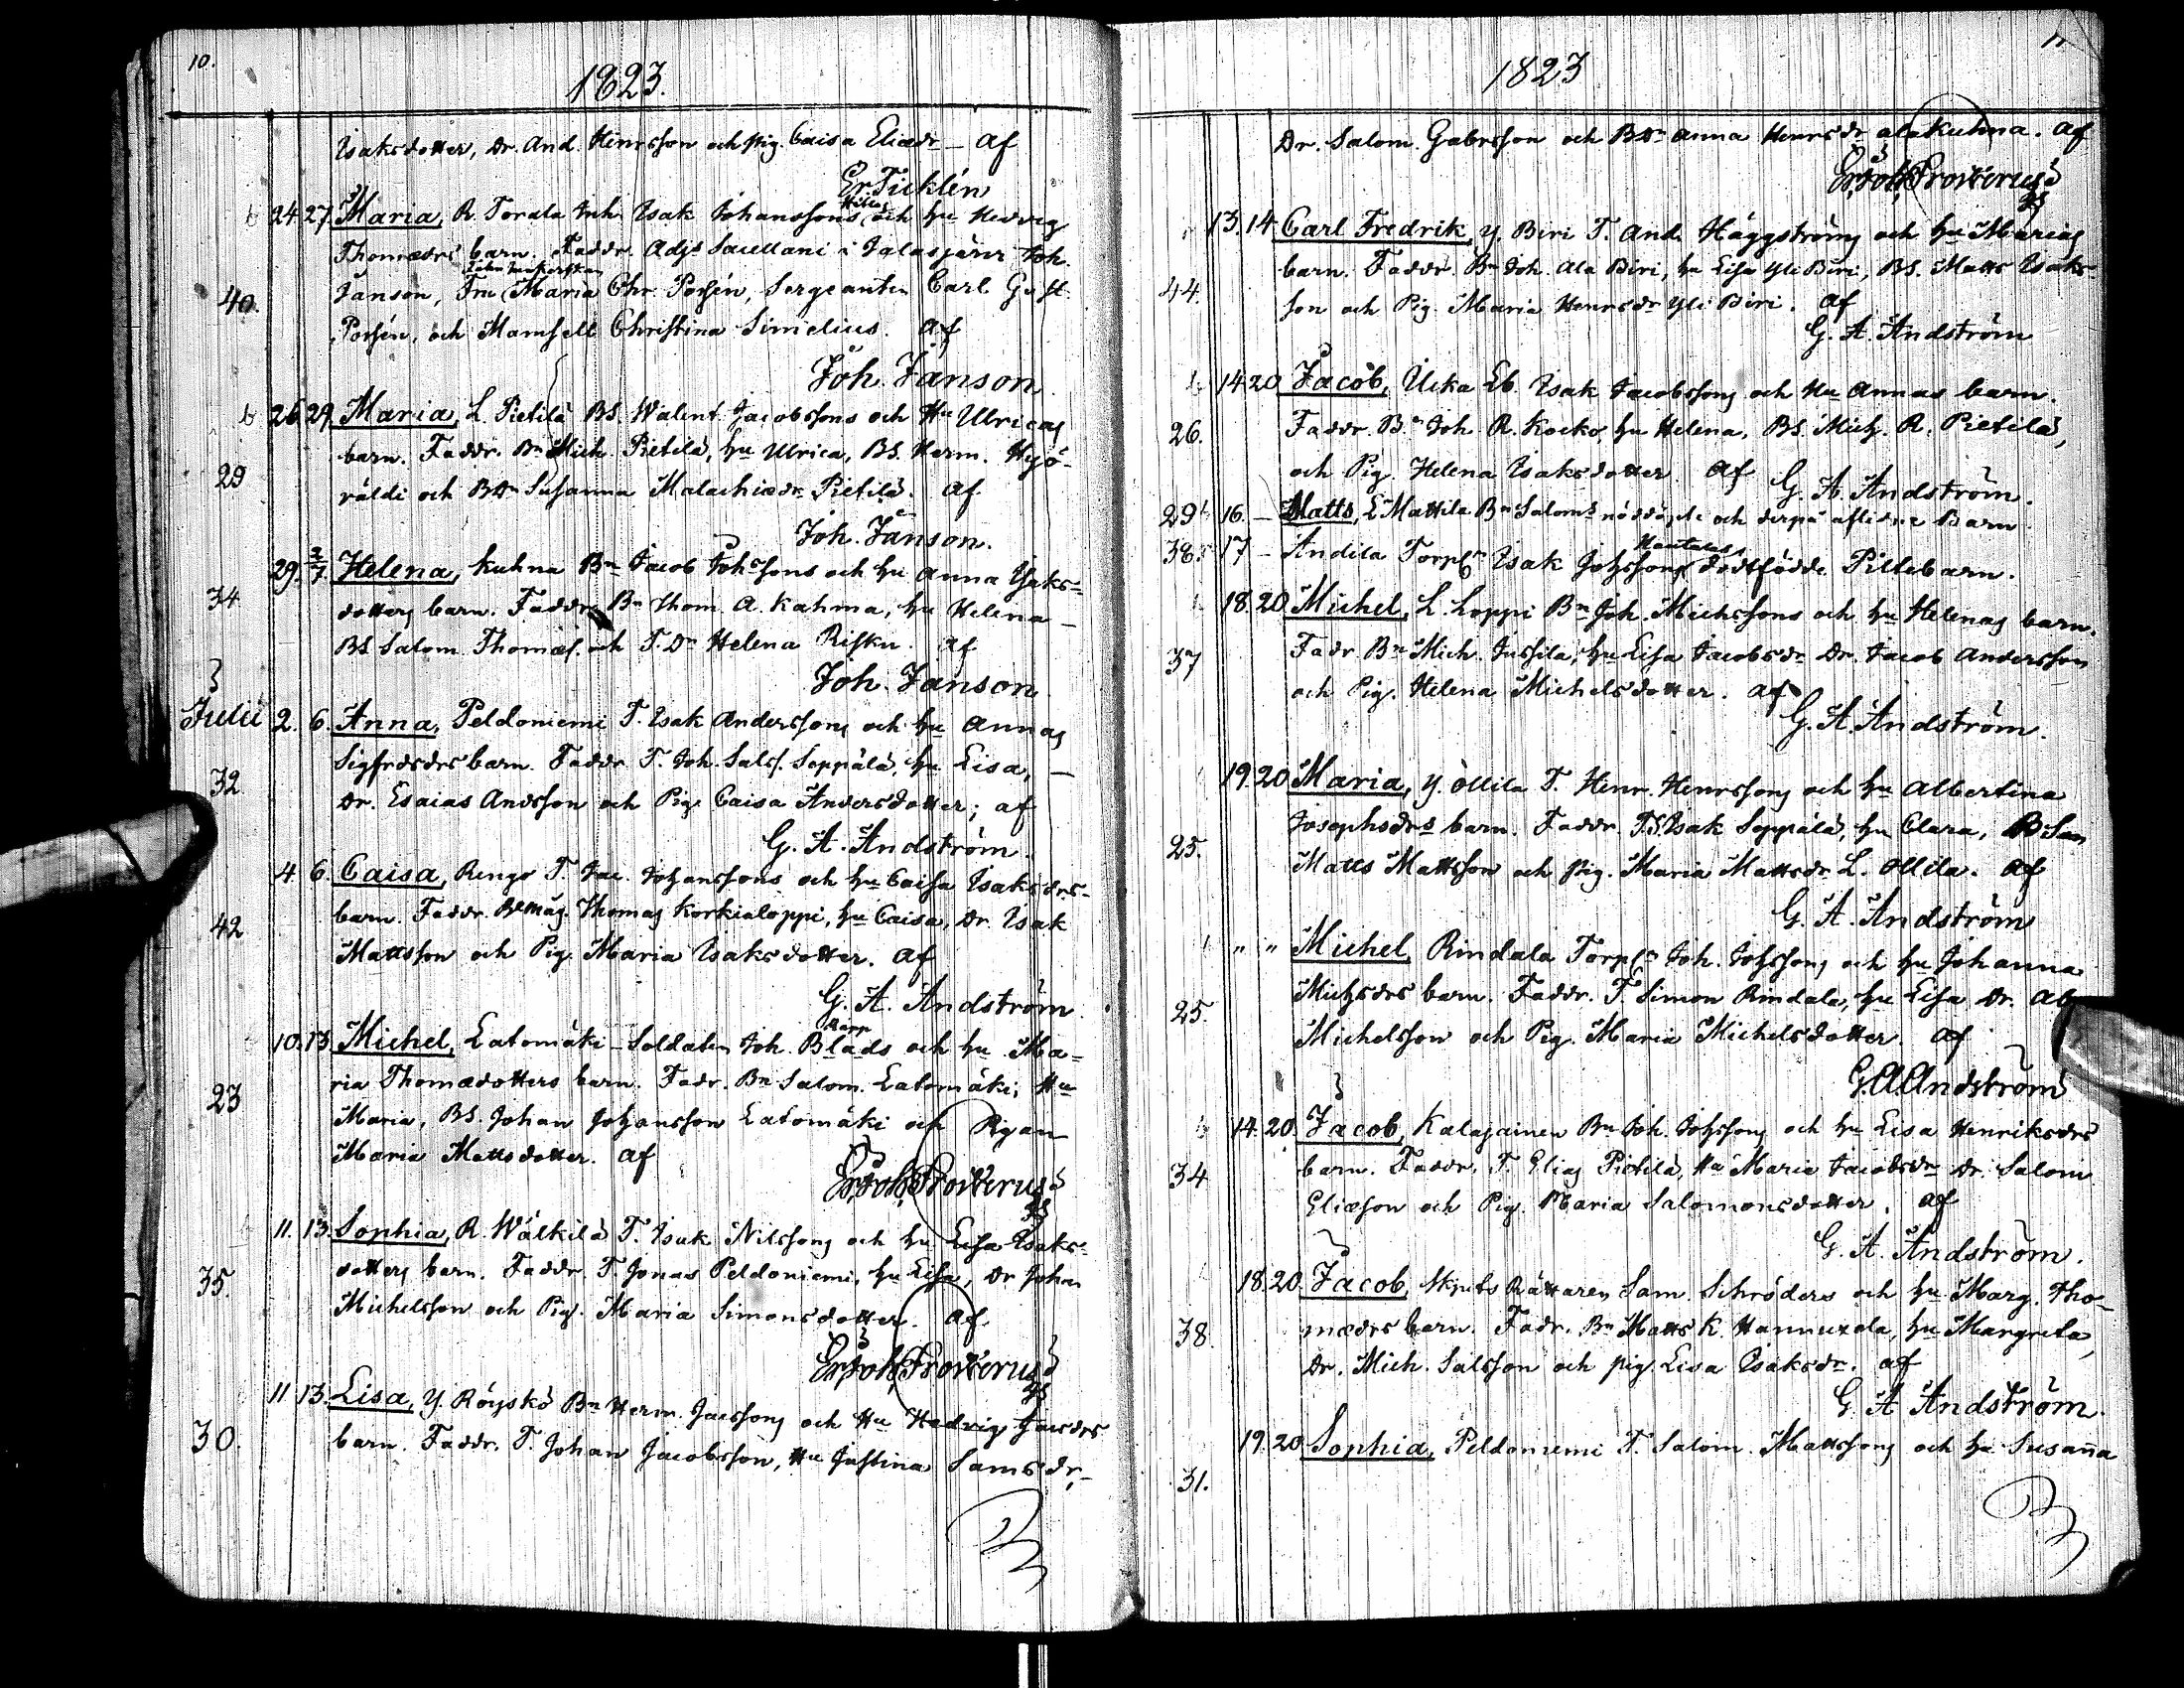 10.
1823.
Isaksdotter, Dr. And. Henrsson och pig. Caisa Eliædr – af
Er. Ticklén
24. 27. Maria, R. Torala Inh. Isak Johanssons och hu Hedvig
Thomædrs barn. Faddr. Adjs Sacellani i Jalasjärvi Joh.
40.
Janson, Fru Maria Chr. Porsén, Sergeanten Carl Gust.
Porsén, och Mamsell Christina Simelius. af
Joh. Janson
26. 29. Maria, L. Pietilä BS. Walent. Jacobssons och Hu Ulricas
barn. Faddr. Bn Mich. Pietilä, hu Ulrica, BS. Herm. Hyö-
29
räldi och BDr Susanna Malachiædr Pietilä. af
Joh. Janson.
29. 2/7. Helena, Kuhna Bn Jacob Johssons och hu Anna Isaks-
34
dotters barn. Faddr. Bn Thom. A. Kahma, hu Helena –
BS Salom. Thomæs. och T. Dr Helena Risku. af
Joh. Janson
Julii 2. 6. Anna, Peldoniemi T. Isak Anderssons och hu Annas
Sigfrsdrs barn. Faddr. T. Joh. Sals. Seppälä, hu Lisa, –
32
Dr. Esaias Andsson och Pig. Caisa Andersdotter; af
G. A. Andström.
4. 6. Caisa, Rengo T. Jac. Johanssons och hu Caisa Isaksdrs-
42
barn. Faddr. Bmåg. Thomas Korkialoppi, hu Caisa, Dr. Isak
Mattsson och Pig. Maria Isaksdotter. af
G. A. Andström
Rapp
10. 13. Michel, Latomäki – Soldaten Joh. Blads och hu Ma-
ria Thomædotters barn. Fadr. Bn Salom. Latomäki, Hu
23
Maria, BS. Johan Johansson Latomäki och Pigan
Maria Mattsdotter. af
Er. Joh. Frosterus
11. 13. Sophia, R. Wälkilä T. Isak Nilssons och hu Lisa Isaks-
35.
dotters barn. Faddr. T. Jonas Peldoniemi, hu Lisa, Dr Johan
Michelsson och Pig. Maria Simonsdotter. af
Er. Joh. Frosterus
11 13. Lisa, Y. Röyskö Bn Herm. Jacssons och Hu Hedvig Jacsdrs
30.
barn. Faddr. T. Johan Jacobsson, Hu Justina Samsdr,
11
1823
Dr. Salom. Gabrsson och BDr Anna Henrsdr alakuhna. af
Er. Joh. Frosterus
13. 14 Carl Fredrik, Y. Biri T. And. Häggströms och hu Marias
barn. Faddr. Bn Joh. Ala Biri, hu Lisa Yli Biri, BS. Matts Isaks-
44.
son och Pig. Maria Henrsdr Yli Biri. af
G. A. Andström
14 20 Jacob, Ucka Eb. Isak Jacobssons och Hu Annas barn.
26.
Faddr. Bn Joh. R. Kocko, hu Helena, BS. Mich. R. Pietilä,
och Pig. Helena Isaksdotter af
G. A. Andström.
29 16. – Matts, L Mattila Bn Saloms nöddöpte och derpå aflidne Barn
38. 17 – Andila Torpn Isak Johssons dödfödde Piltebarn.
18. 20 Michel, L. Loppi Bn Joh. Michssons och hu Helenas barn.
37
Fadr. Bn Mich. Jussila, hu Lisa Jacobsdr Dr. Jacob Andersson
och Pig. Helena Michelsdotter. af
G. A. Andström.
19. 20 Maria, Y. Ollila T. Henr. Henrssons och hu Albertina
Josephsdrs barn. Faddr. T.S. Isak Seppälä, hu Clara, B San
25.
Matts Mattsson och pig. Maria Mattsdr L. Ollila. af
G. A. Andström
" " Michel Rindala Torpn Joh. Johssons och hu Johanna
Michsdrs barn. Faddr. T. Simon Rindala, hu Lisa Dr.
25.
Michelsson och Pig. Maria Michelsdotter. af
G. A. Andström
14. 20. Jacob, Kalajainen Bn Joh. Johssons och hu Lisa Henriksdrs
34
barn. Faddr. T. Elias Pietilä, Hu Maria Jacobsdr Dr. Salom
Eliæson och Pig. Maria Salomonsdotter. af
G. A. Andström.
18. 20. Jacob, Skjuts Rättaren Sam. Schröders och hu Marg. Tho-
38.
mædrs barn. Fadr. Bn Matts K. Hannuxela, hu Margreta,
Dr. Mich. Salsson och pig. Lisa Isaksdr. af
G. A. Andström.
19. 20 Sophia, Peldoniemi T. Salom. Mattssons och hu Susaña
31.